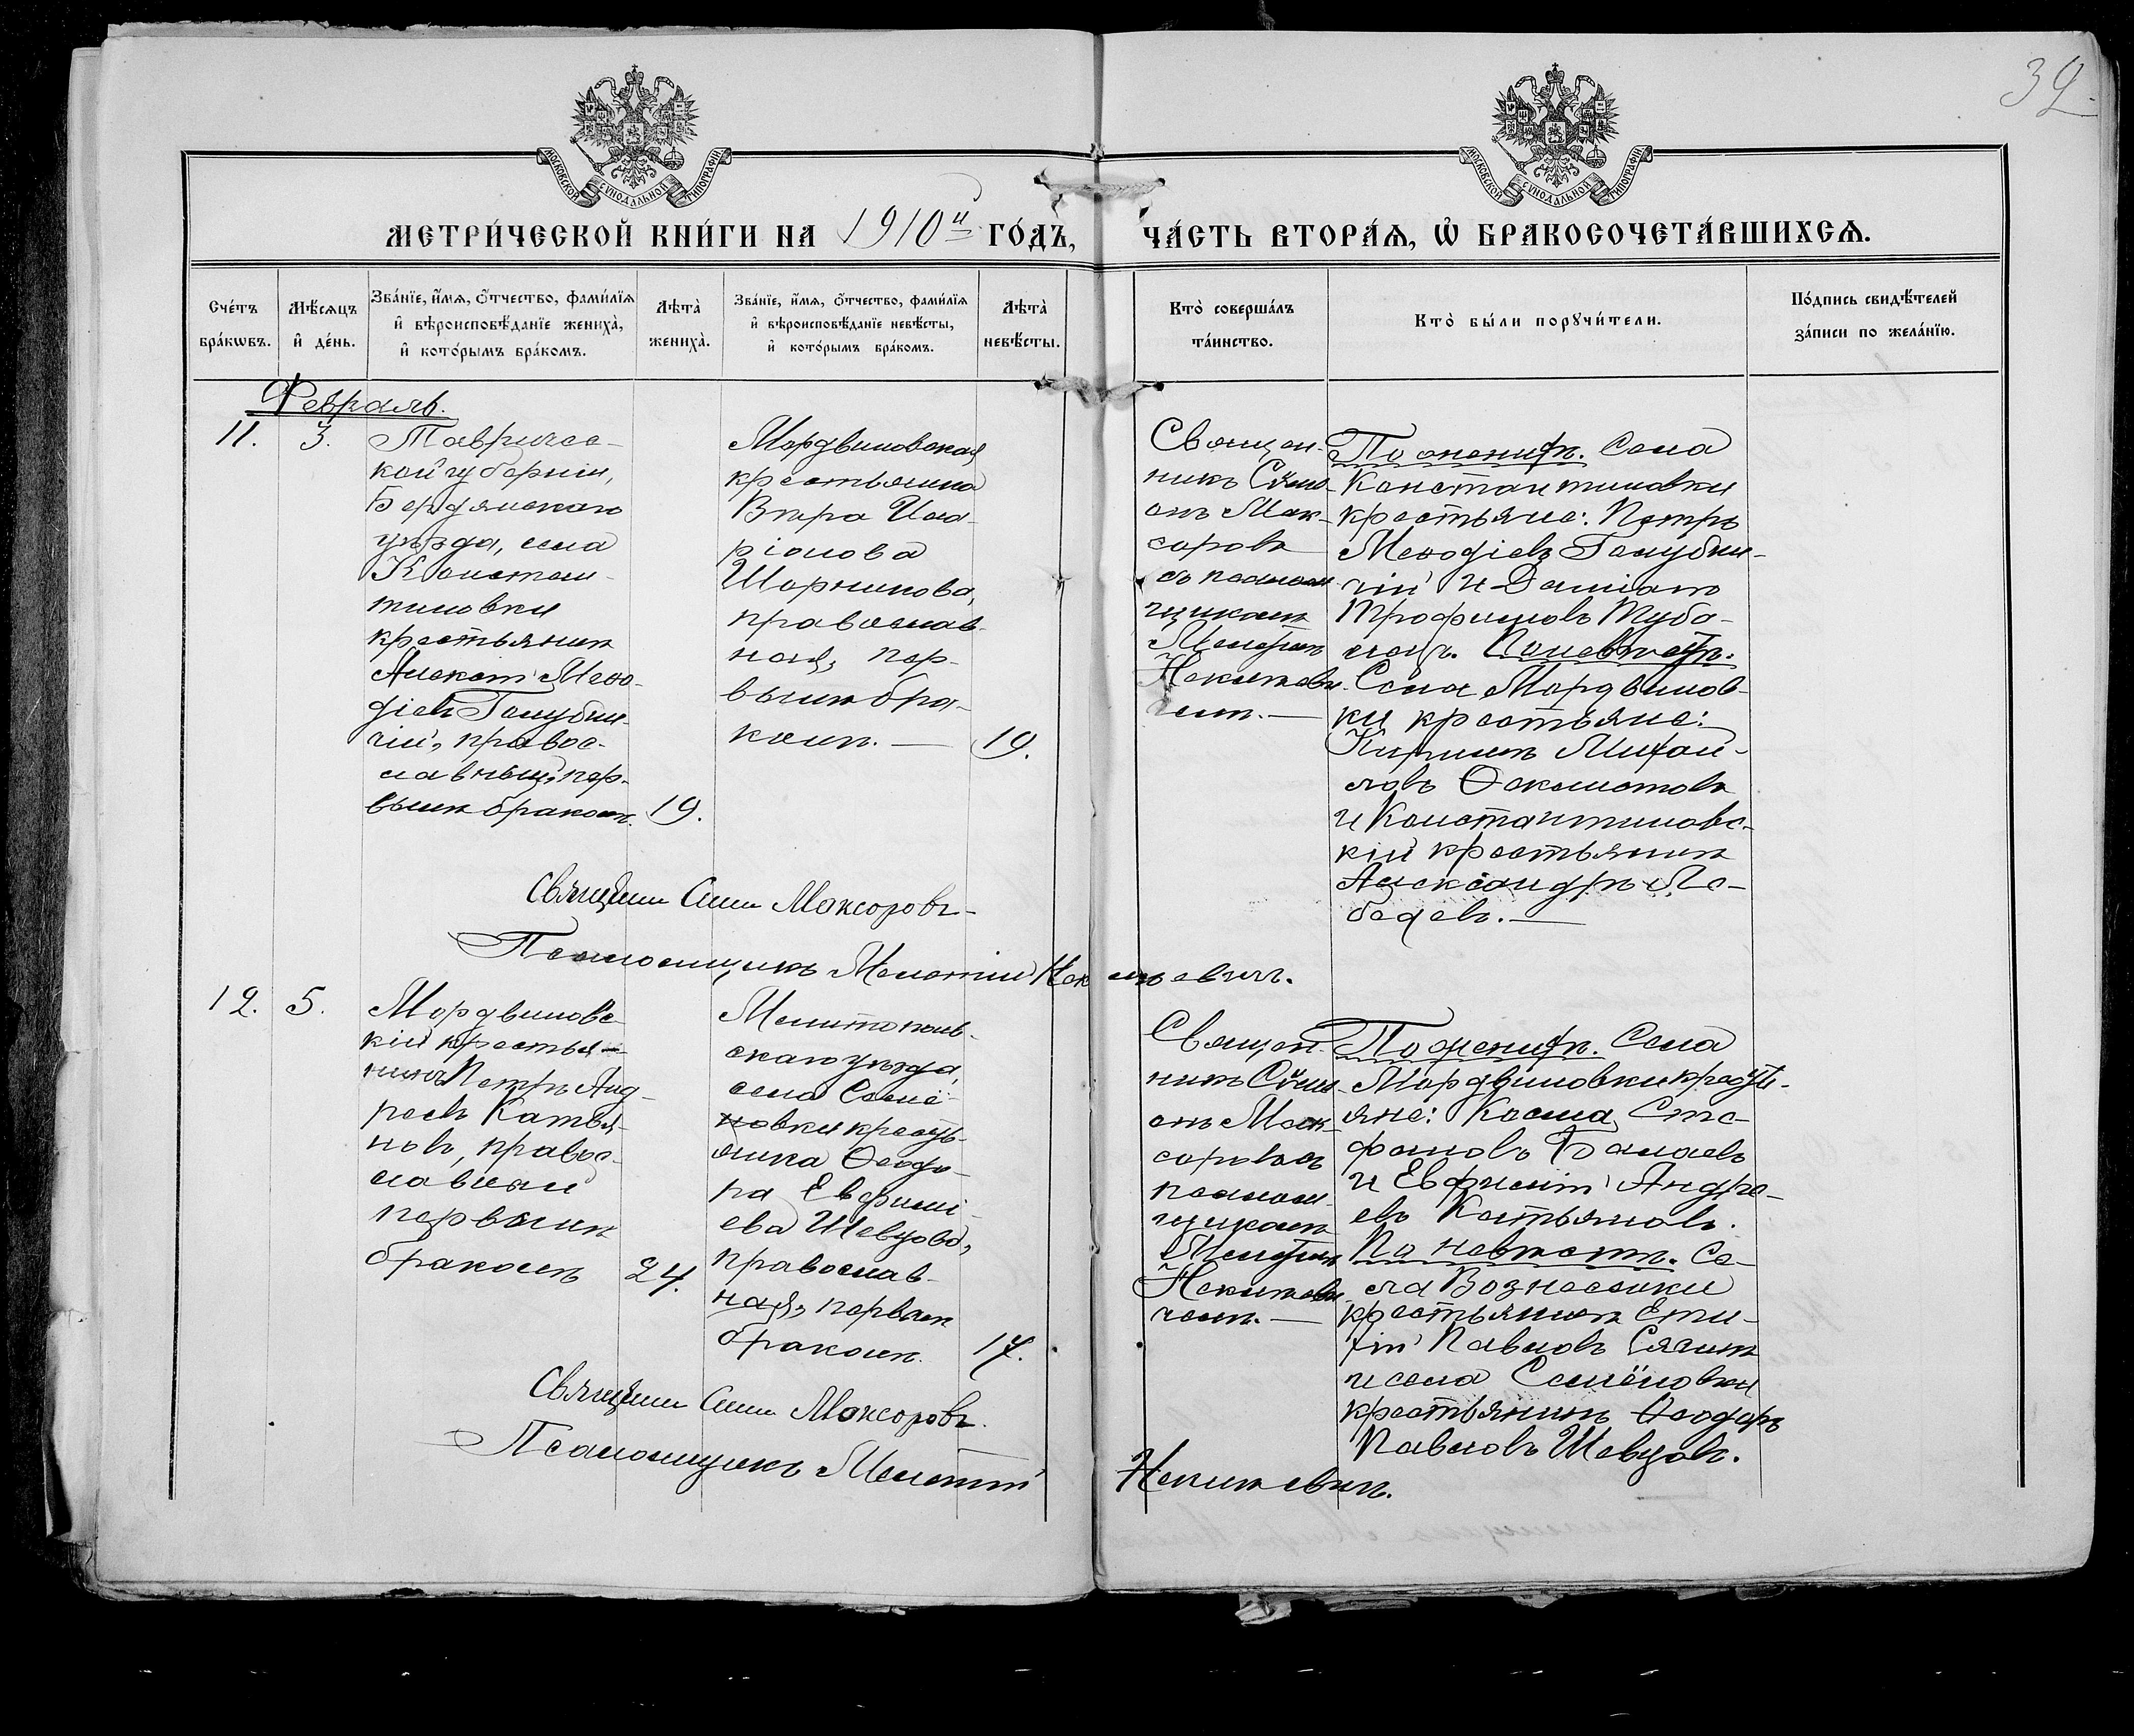 39.
МОСКОВСКОЙ СѴНОДАЛЬНОЙ ТИПОГРАФІИ
МОСКОВСКОЙ СѴНОДАЛЬНОЙ ТИПОГРАФІИ
МЕТРИ́ЧЕСКОЙ КНИ́ГИ НА 1910й ГО́ДЪ,
ЧА́СТЬ ВТОРА́Ѧ, Ѡ҆ БРАКОСОЧЕТА́ВШИХСѦ.
Сче́тъ
бра́кѡвъ.
Мѣ́сѧцъ
и҆ де́нь.
Зва́нїе, и҆́мѧ, ѻ҆́тчество, фами́лїѧ
и҆ вѣроисповѣ́данїе жениха̀,
и҆ кото́рымъ бра́комъ.
Лѣта̀
жениха̀.
Зва́нїе, и҆́мѧ, ѻ҆́тчество, фами́лїѧ
и҆ вѣроисповѣ́данїе невѣ́сты,
и҆ кото́рымъ бра́комъ.
Лѣта̀
невѣ́сты.
Кто̀ соверша́лъ
та́инство.
Кто̀ бы́ли порꙋчи́тели.
По́дпись свидѣ́телей
за́писи по жела́нїю.
Февраль.
11.
3.
Тавричес-
кой губерніи,
Бердянскаго
уѣзда, села
Констан-
тиновки
крестьянинъ
Алексѣй Меѳо-
діевъ Голубни-
чій, правос-
лавный, пер-
вымъ бракомъ.
19.
Мордвиновская
крестьянка
Вѣра Ила-
ріонова
Шорникова,
православ-
ная, пер-
вымъ бра-
комъ.
19.
Священ-
никъ Сѵме-
онъ Мак-
соровъ
съ псалом-
щикомъ
Мелетіемъ
Некитеви-
чемъ.
По женихѣ. Села
Константиновки
крестьяне: Петръ
Меѳодіевъ Голубни-
чій и Даміанъ
Трофимовъ Туба-
По невѣстѣ.
Села Мордвинов-
ки крестьяне:
Кириллъ Михай-
ловъ Ѳеклистовъ
и Константиновс-
кій крестьянинъ
Александръ Ле-
бедевъ.
Священн Симе Максоровъ
Псаломщикъ Мелетій
12.
5.
Мордвиновс-
кій крестья-
нинъ Петръ Анд-
реевъ Катья-
новъ, правос-
лавный
первымъ
бракомъ
24.
Мелитополь-
скаго уѣзда,
села Семё-
новки кресть-
янка Ѳеодо-
ра Евфимі-
ева Шевцова,
православ-
ная, первымъ
бракомъ.
17.
Священ-
никъ Сѵме-
онъ Мак-
соровъ съ
псалом-
щикомъ
Мелетіемъ
Некитеви-
чемъ.
По женихѣ. Села
Мордвиновки кресть-
яне: Косма Сте-
фановъ Балаевъ
и Евфимій Андре-
евъ Катьяновъ.
По невѣстѣ. Се-
ла Вознесенки
крестьянинъ
Павловъ
и села Семёновки
крестьянинъ Ѳеодоръ
Павловъ Шевцовъ.
Священн Симе Максоровъ
Псаломщикъ Мелетій